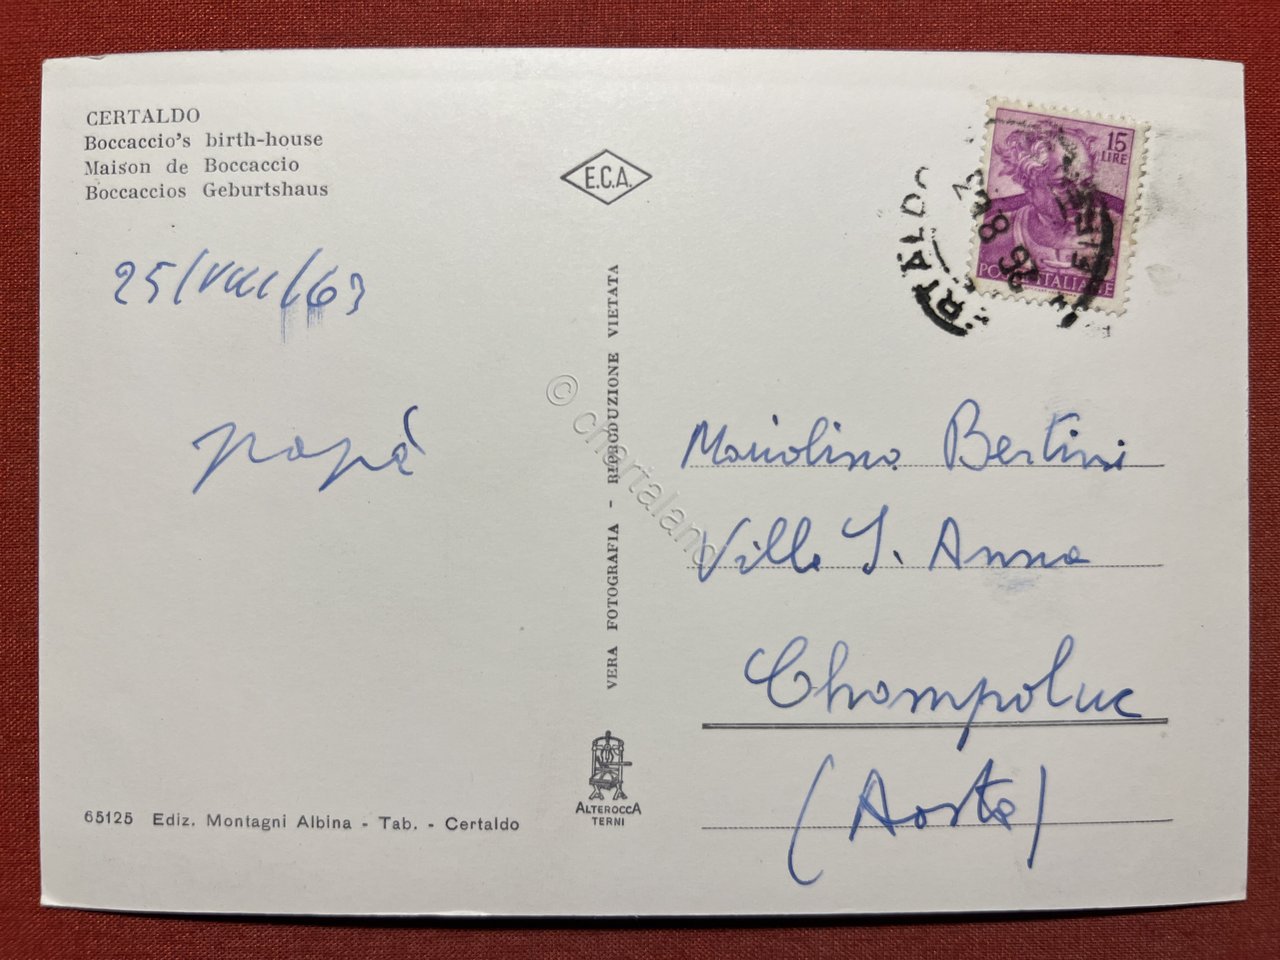 CERTALDO
Boccaccio's birth-house
Maison de Boccaccio
Boccaccios Geburtshaus
25/VIII/63
papà
65125 Ediz. Montagni Albina - Tab. - Certaldo
E.C.A.
VERA FOTOGRAFIA - RIPRODUZIONE VIETATA
© chartaland
ALTEROCCA
TERNI
15
LIRE
POSTE ITALIANE
Mariolino Bertini
Villa S. Anna
Champoluc
(Aosta)